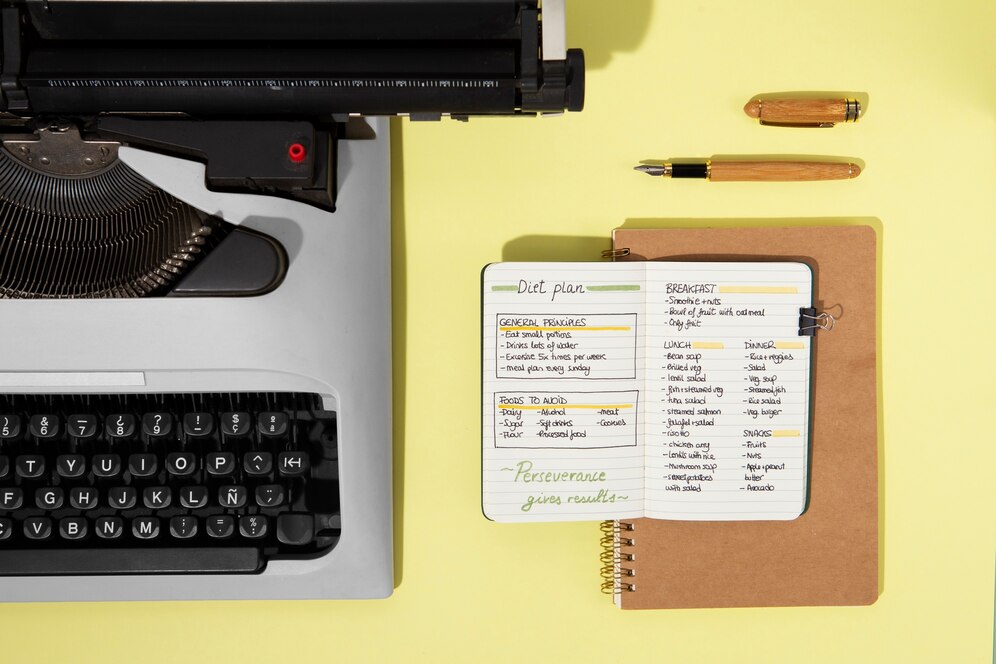 5 & 6 ¿ 7 ? 8 ' 9 ! - $ ª º
T Y U I O P ^
F G H J K L Ñ ¨
C V B N M ; , : . %
Diet plan
GENERAL PRINCIPLES
- Eat small portions
- Drinks lots of water
- Excersise 5x times per week
- meal plan every sunday
FOODS TO AVOID
- Dairy - Alcohol - meat
- Sugar - Soft drinks - Cookies
- Flour - Processed food
~Perseverance
gives results~
BREAKFAST
- Smoothie + nuts
- Bowl of fruit with oatmeal
- Only fruit
LUNCH
- Bean soup
- Grilled veg
- lentil salad
- fish + steamed veg
- tuna salad
- steamed salmon
- falafel + salad
- risotto
- chicken curry
- Lentils with rice
- Mushroom soup
- sweet potatoes
with salad
DINNER
- Rice + veggies
- Salad
- Veg soup
- Steamed fish
- Rice salad
- Veg burger
SNACKS
- Fruits
- Nuts
- Apple + peanut
butter
- Avocado